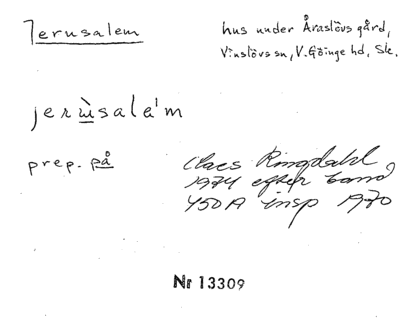 Jerusalem
hus under Åraslövs gård,
Vinslövs sn, V. Göinge hd, Sk.
jerùsalá'm
prep. på
Claes Ringdahl,
1974 efter band
450A insp 1970
Nr 13309